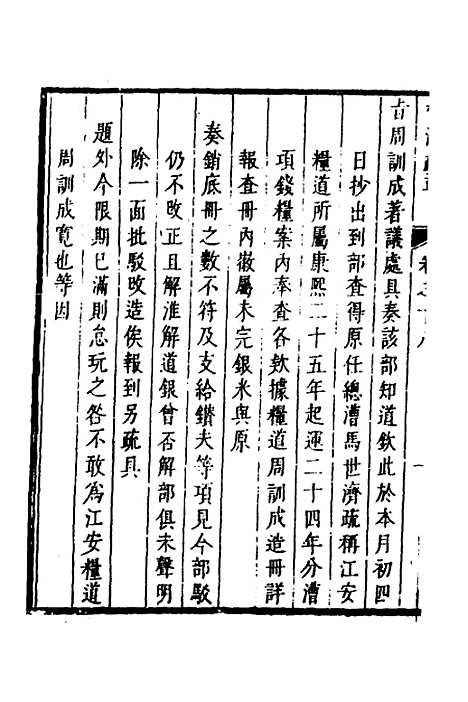 旨周訓成著議處具奏該部知道欽此於本月初四
日抄出到部查得原任總漕馬世濟疏稱江安
糧道所屬康熙二十五年起運二十四年分漕
項錢糧案內奉查各款據糧道周訓成造冊詳
報查冊內徽屬未完銀米與原
奏銷底冊之數不符及支給鑽夫等項見今部駁
仍不改正且解淮解道銀曾否解部俱未聲明
除一面批駁改造俟報到另疏具
題外今限期已滿則怠玩之咎不敢為江安糧道
周訓成寬也等因